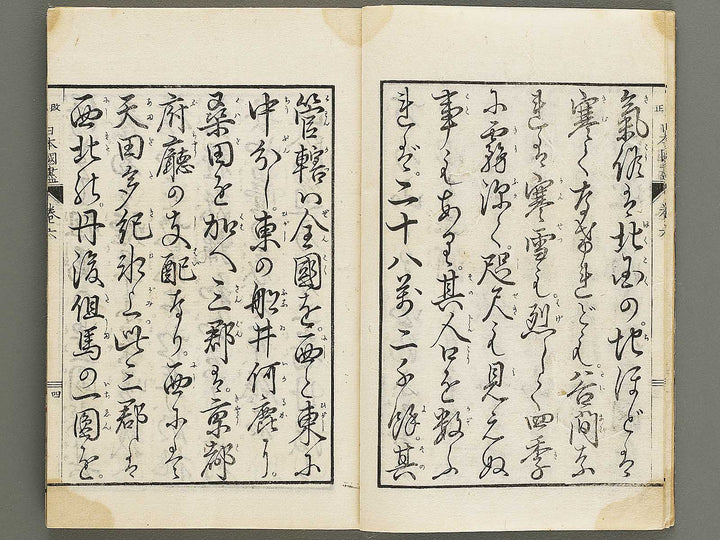 氣候は北国の地ほどは
寒くなけれども谷間な
れは寒雪も烈しく四季
に霧深く咫尺も見えぬ
事もあり其人口を数ふ
れば二十八萬二千餘其
管轄ハ全國を西と東に
中分し東の船井何鹿り
桑田を加へ三郡は京都
府廳の支配なり西にて
天田多紀氷上此三郡は
西北の丹後但馬の一圓を
日本國盡
巻六
四